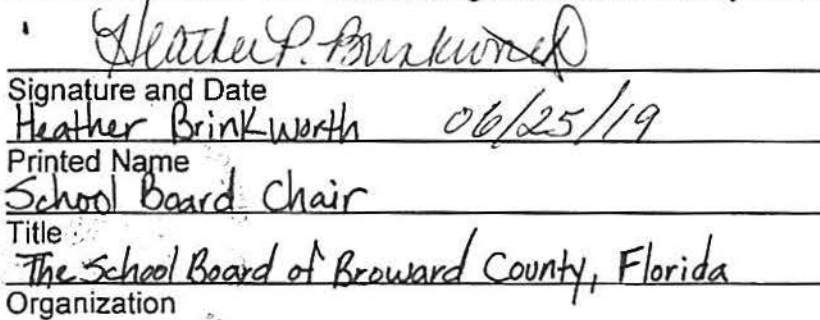 Heather P. Brinkworth
Signature and Date
Heather Brinkworth 06/25/19
Printed Name
School Board Chair
Title
The School Board of Broward County, Florida
Organization